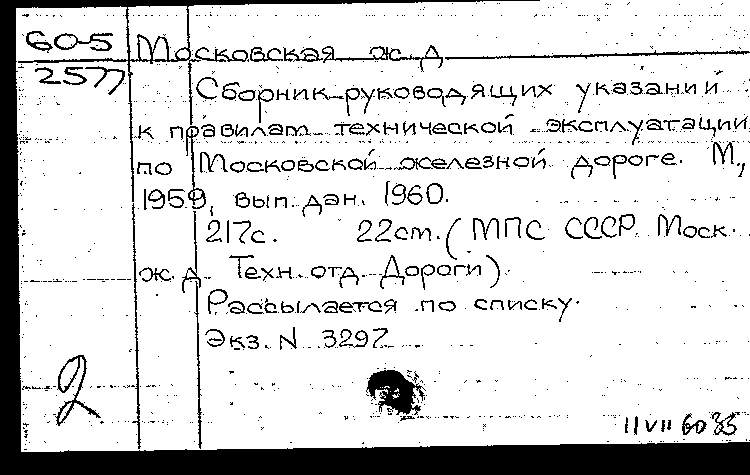 60-5
2577
Московская ж. д.
Сборник руководящих указаний
к правилам технической эксплуатации
по Московской железной дороге. М.,
1959, вып. дан. 1960.
217с. 22см. (МПС СССР. Моск.
ж. д. Техн. отд. Дороги).
Рассылается по списку.
Экз. N 3297
2
11 VII 60